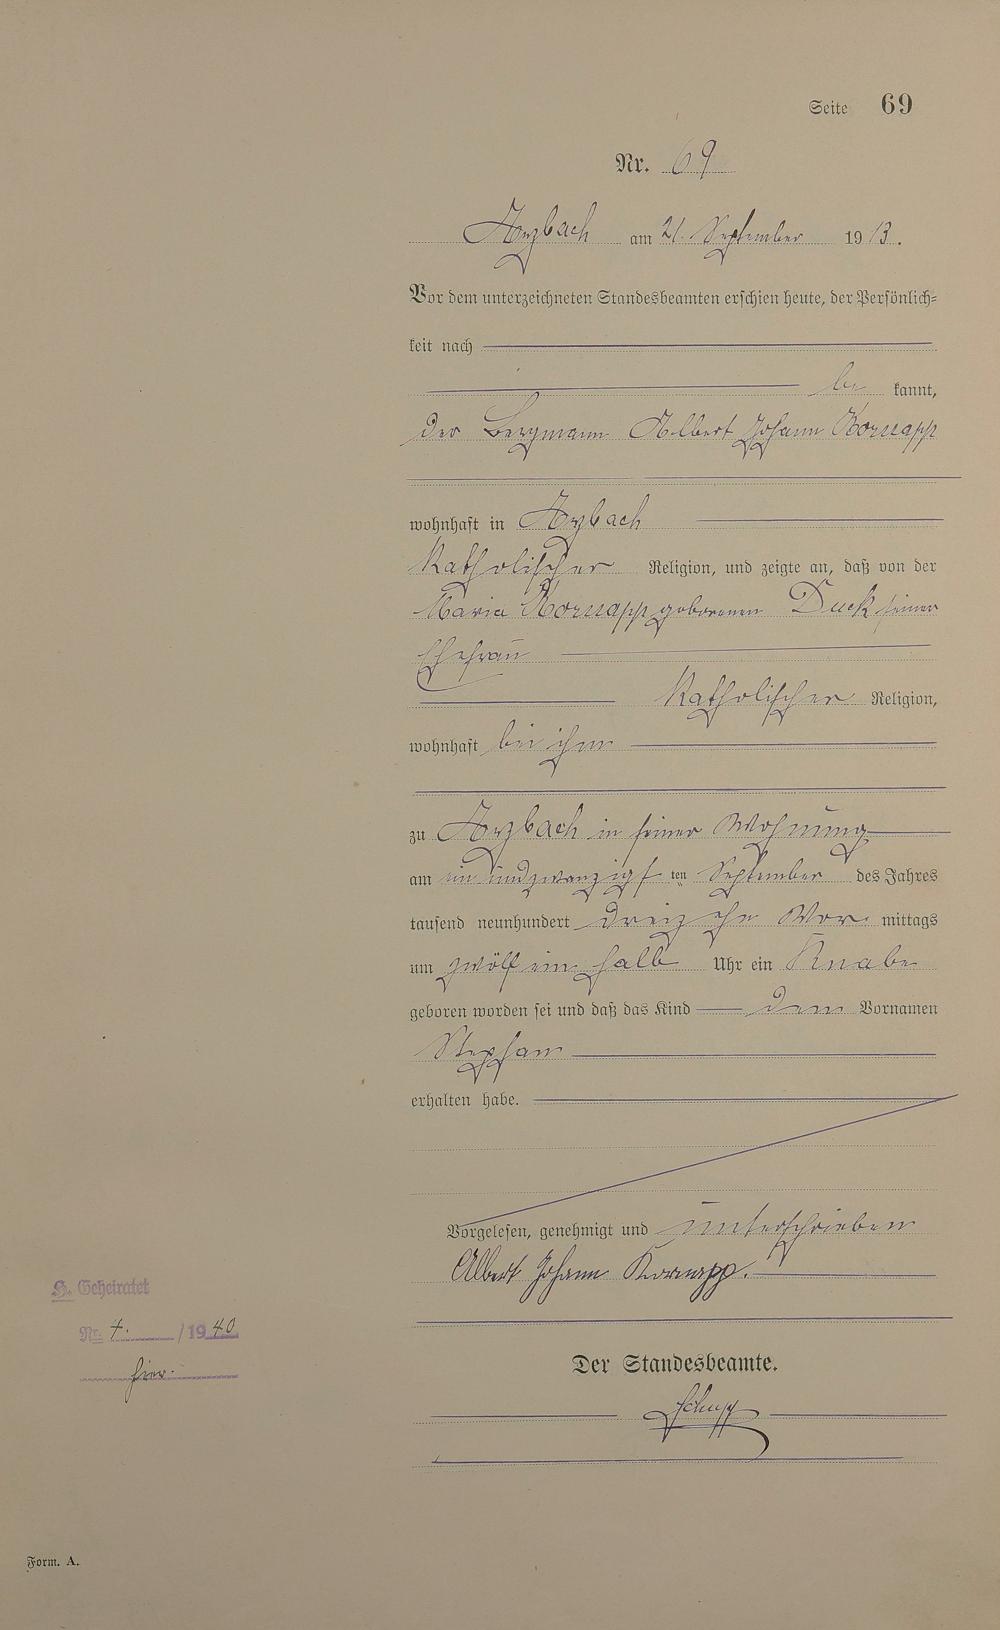 Seite 69
Nr. 69
Arzbach am 21. September 1913.
Vor dem unterzeichneten Standesbeamten erschien heute, der Persönlich-
keit nach
be kannt,
der Bergmann Albert Johann Kornapp
wohnhaft in Arzbach
katholischer Religion, und zeigte an, daß von der
Maria Kornapp geborenen Duck seiner
Ehefrau
katholischer Religion,
wohnhaft bei ihm
zu Arzbach in seiner Wohnung
am ein undzwanzigsten September des Jahres
tausend neunhundert dreizehn Vor mittags
um zwölf ein halb Uhr ein Knabe
geboren worden sei und daß das Kind den Vornamen
Stephan
erhalten habe.
Vorgelesen, genehmigt und unterschrieben
Albert Johann Kornapp.
H. Geheiratet
Nr. 4. /1940
hier.
Der Standesbeamte.
Schupp
Form. A.